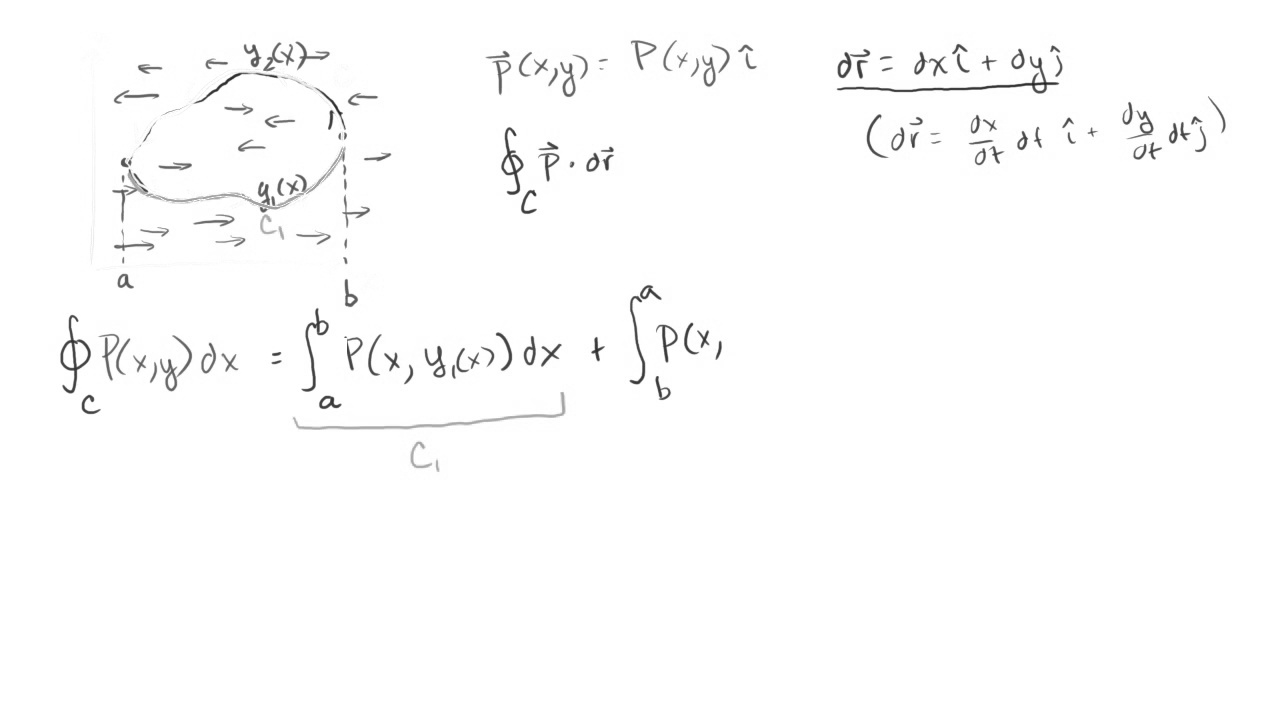 y₂(x)
y₁(x)
C₁
a
b
p⃗(x,y) = P(x,y) î
∮_C p⃗ · dr⃗
dr⃗ = dx î + dy ĵ
(dr⃗ = dx/dt dt î + dy/dt dt ĵ)
∮_C P(x,y) dx = ∫_a^b P(x, y₁(x)) dx + ∫_b^a P(x,
C₁